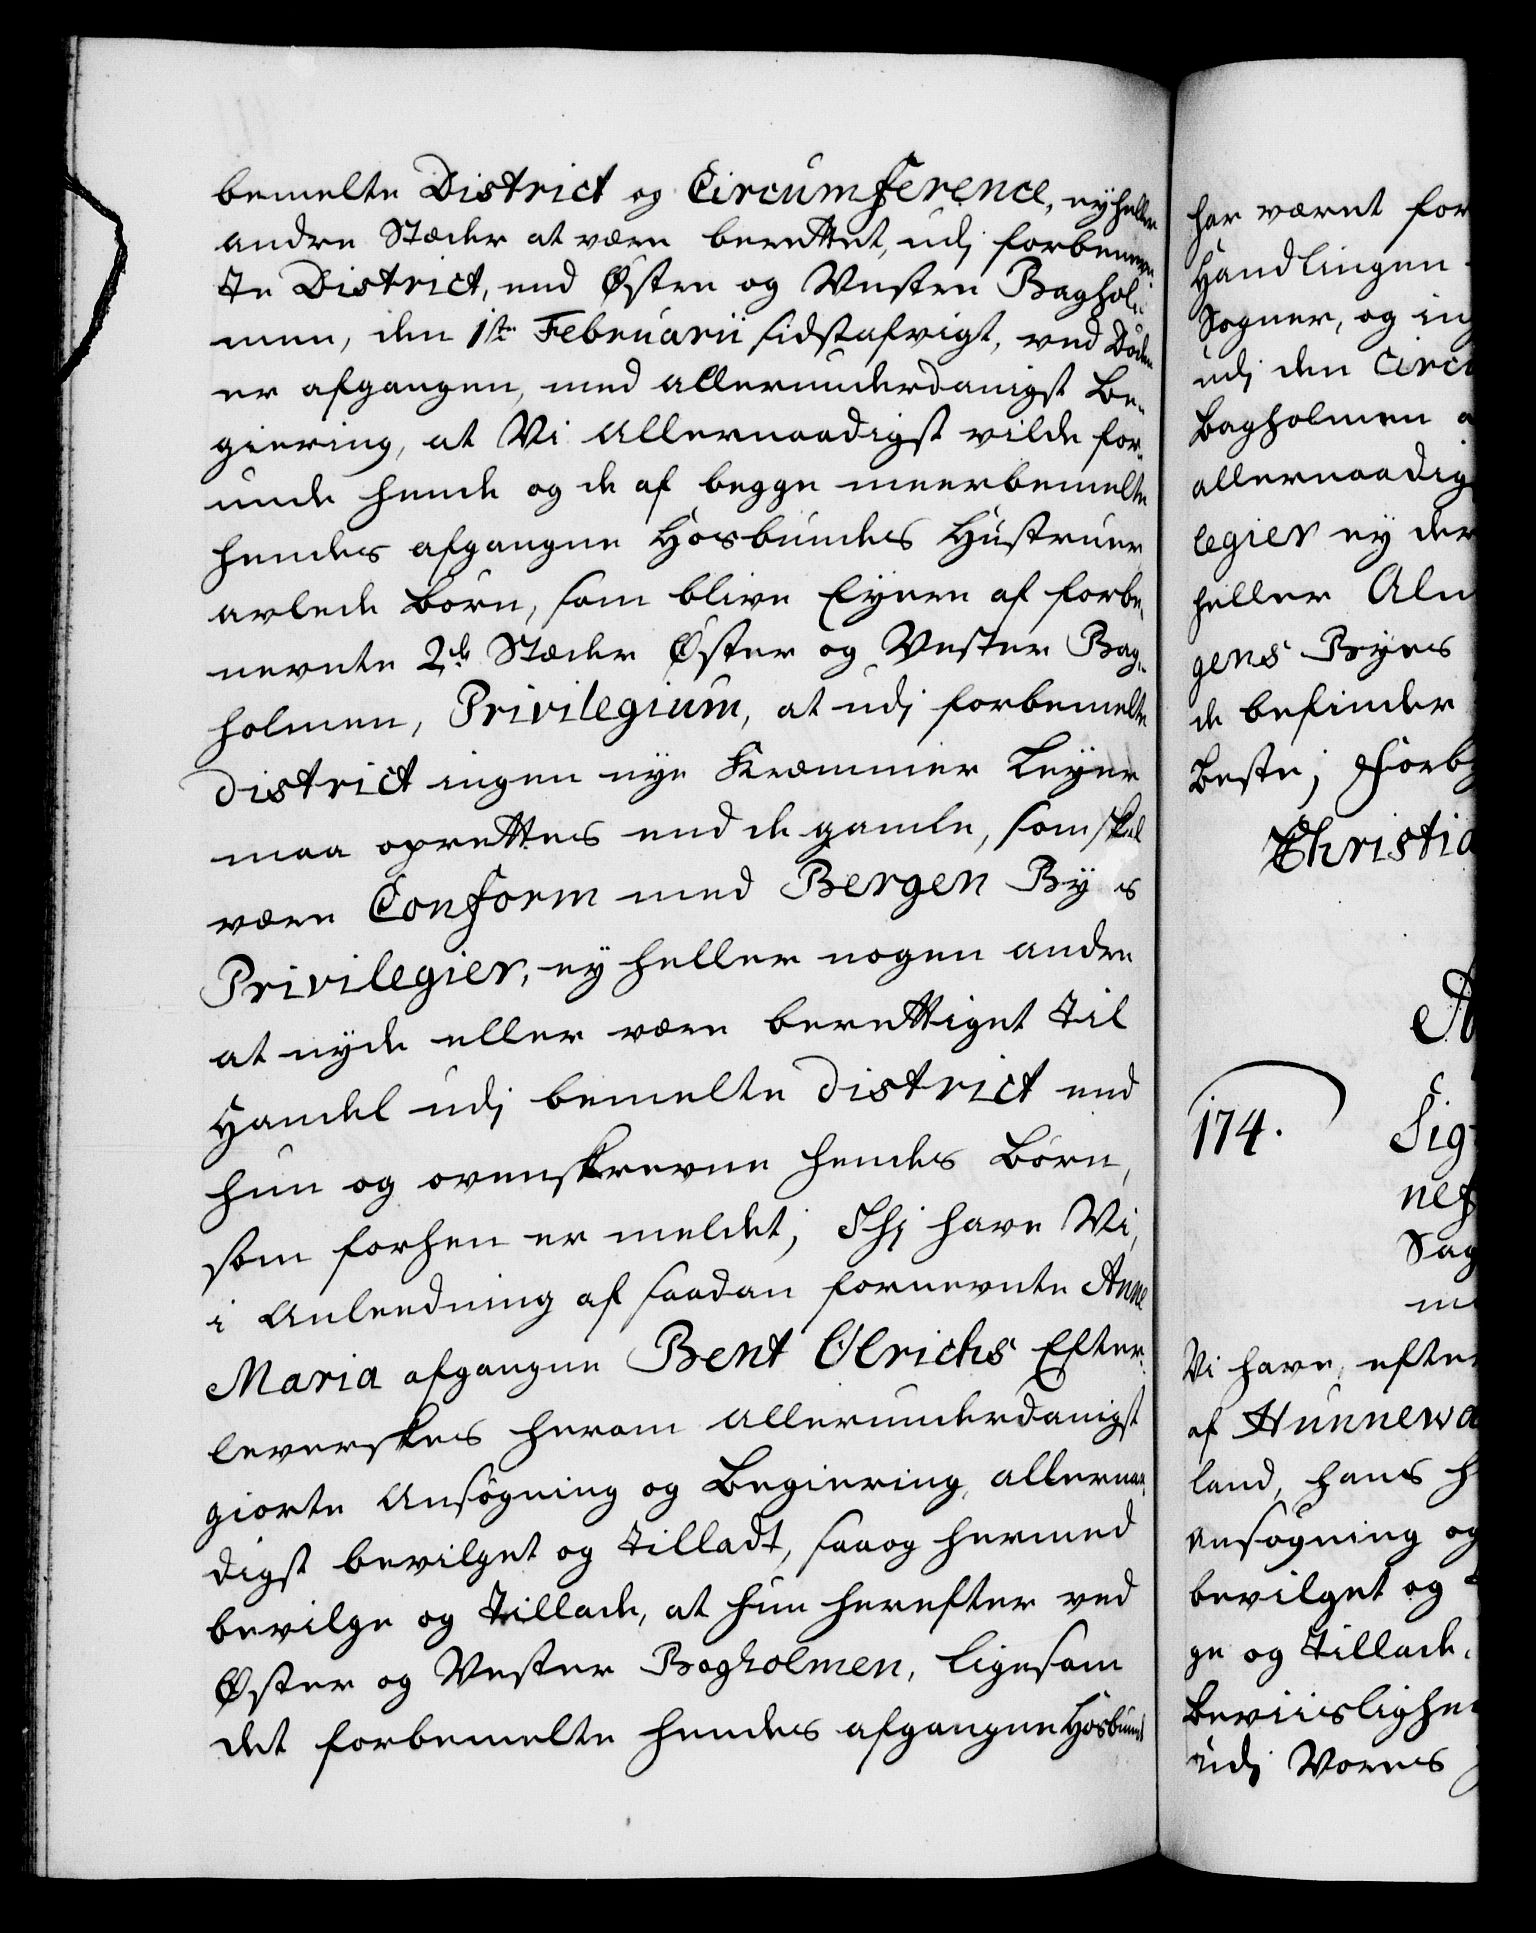 bemelte District og Circumference, ey heller
andre Stæder at være berettet, udj forbenevn
te District, end Østre og Vestre Baghol-
men, den 1ste Februarii sidstafvigt, ved Døden
er afgangen, med allerunderdanigst Be-
giering, at Vi Allernaadigst vilde for-
unde hende og de af begge meerbemelte
hendes afgangne Hosbundes Hustruer
avlede Børn, som blive Eyere af forbe-
nevnte 2de Stæder Øster og Vester Bag-
holmen, Privilegium, at udj forbemelte
District ingen nye Kræmmer Leyer
maa oprettes end de gamle, som skal
være Conform med Bergen Byes
Privilegier, ey heller nogen andre
at nyde eller være berettiget til
Handel udj bemelte District end
hun og ovenskrevne hendes Børn,
som forhen er meldet; Thj have Vi,
i Anleedning af saadan fornevnte Anne
Maria afgangne Bent Ulrichs Efter-
leverskes herom allerunderdanigst
giorte Ansøgning og Begiering, allernaa-
digst bevilget og tilladt, saa og hermed
bevilge og tillade, at hun herefter ved
Øster og Vester Bagholmen, ligesom
det forbemelte hendes afgangne Hosbund
har været for
Handlingen
Sogner, og in
udj den Circ
Bagholmen
allernaadig
legier ey der
heller Alm
gens Byes
de befinder
beste; Forb
Christia
174.
Sig
nef
Sag
Vi have, efter
af Hunnewa
land, hans H
Ansøgning og
bevilget og
ge og tillade,
Beviislighe
udj Vores